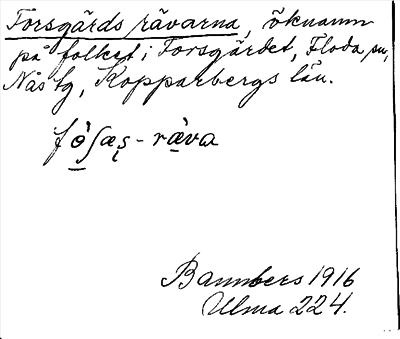 Forsgårds rävarna, öknamn
på folket i Forsgärdet, Floda sn,
Nås tg, Kopparbergs län.
fò̱ʃæʂ-rævа
Bannbers 1916
Ulma 224.